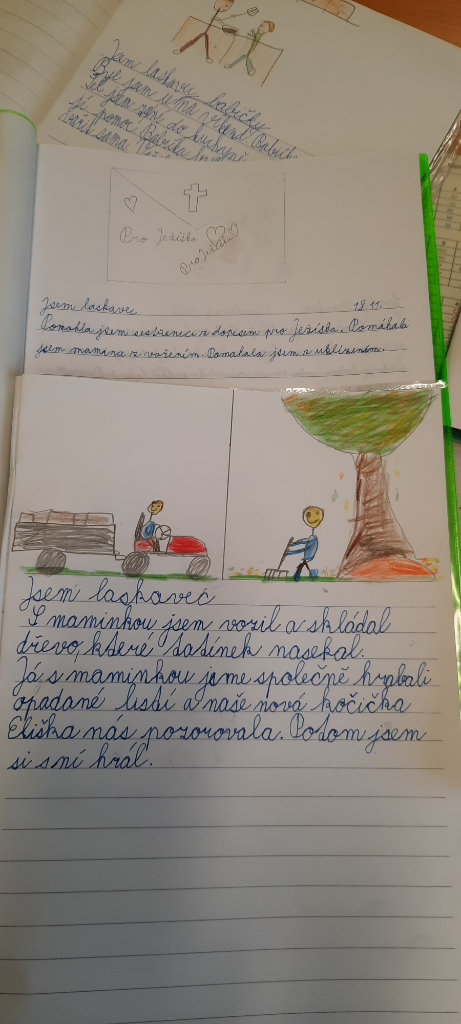 Jsem laskavec babičky
Byl jsem u
Šel jsem do kuchyně
jí pomoc Babička
vařit sama
Pro Ježíška
Pro Ježíška
Jsem laskavec 18.11.
Pomohla jsem sestřenici z dopisem pro Ježíška. Pomáhala
jsem mamince z vařením. Pomahala jsem s uklízením.
Jsem laskavec
S maminkou jsem vozil a skládal
dřevo, které tatínek nasekal.
Já s maminkou jsme společně hrabali
opadané listí a naše nová kočička
Eliška nás pozorovala. Potom jsem
si s ní hrál.